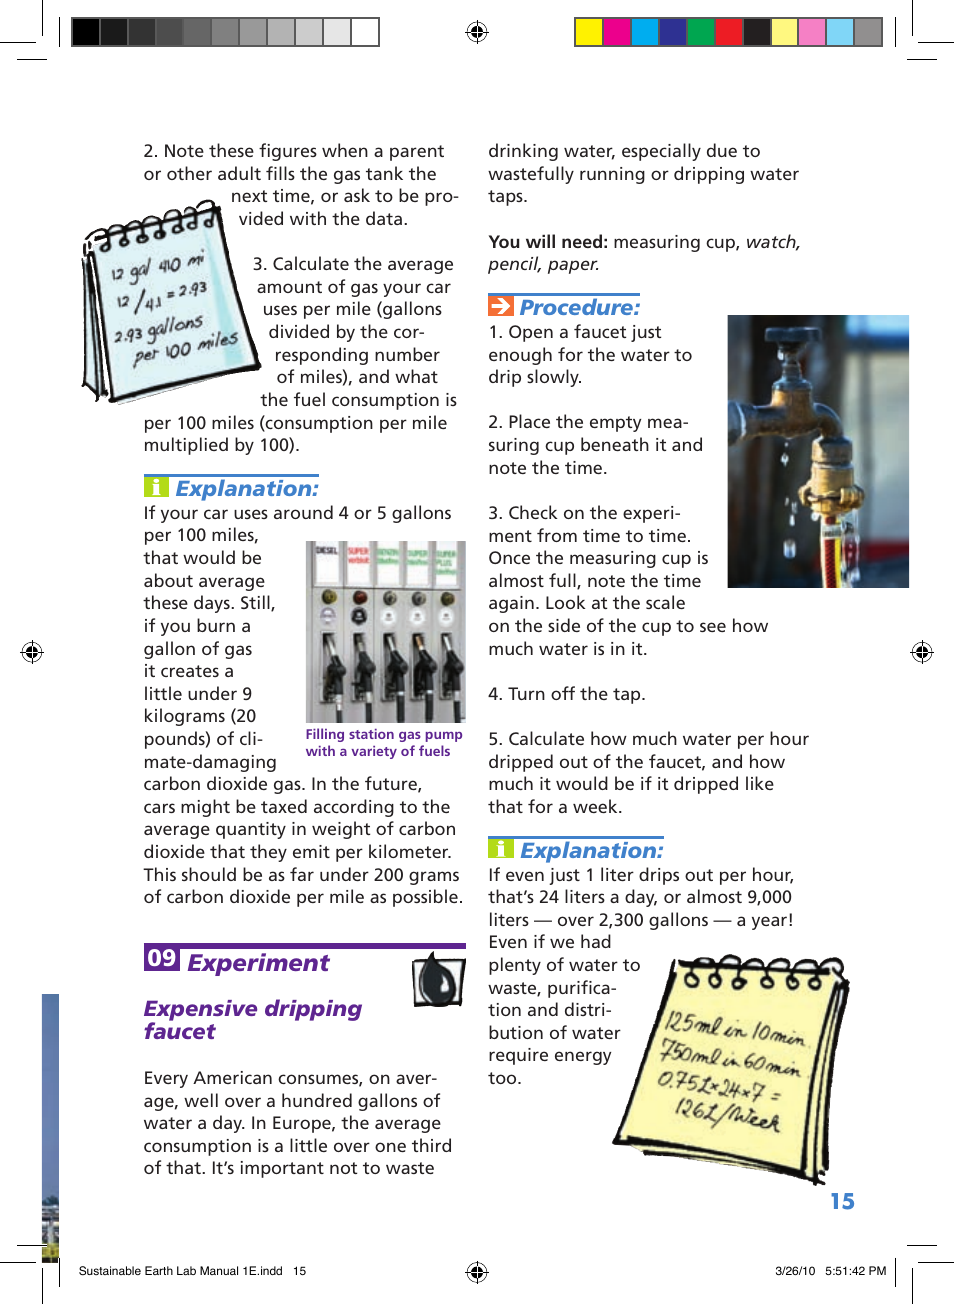 2. Note these figures when a parent
or other adult fills the gas tank the
next time, or ask to be pro-
vided with the data.
12 gal 410 mi
12/4.1 = 2.93
2.93 gallons
per 100 miles
3. Calculate the average
amount of gas your car
uses per mile (gallons
divided by the cor-
responding number
of miles), and what
the fuel consumption is
per 100 miles (consumption per mile
multiplied by 100).
i Explanation:
If your car uses around 4 or 5 gallons
per 100 miles,
that would be
about average
these days. Still,
if you burn a
gallon of gas
it creates a
little under 9
kilograms (20
pounds) of cli-
mate-damaging
carbon dioxide gas. In the future,
cars might be taxed according to the
average quantity in weight of carbon
dioxide that they emit per kilometer.
This should be as far under 200 grams
of carbon dioxide per mile as possible.
DIESEL
SUPER
SUPER
SUPER
PLUS
Filling station gas pump
with a variety of fuels
09 Experiment
Expensive dripping
faucet
Every American consumes, on aver-
age, well over a hundred gallons of
water a day. In Europe, the average
consumption is a little over one third
of that. It’s important not to waste
drinking water, especially due to
wastefully running or dripping water
taps.
You will need: measuring cup, watch,
pencil, paper.
➔ Procedure:
1. Open a faucet just
enough for the water to
drip slowly.
2. Place the empty mea-
suring cup beneath it and
note the time.
3. Check on the experi-
ment from time to time.
Once the measuring cup is
almost full, note the time
again. Look at the scale
on the side of the cup to see how
much water is in it.
4. Turn off the tap.
5. Calculate how much water per hour
dripped out of the faucet, and how
much it would be if it dripped like
that for a week.
i Explanation:
If even just 1 liter drips out per hour,
that’s 24 liters a day, or almost 9,000
liters — over 2,300 gallons — a year!
Even if we had
plenty of water to
waste, purifica-
tion and distri-
bution of water
require energy
too.
125ml in 10min.
750ml in 60min.
0.75L×24×7 =
126L/Week
15
Sustainable Earth Lab Manual 1E.indd 15
3/26/10 5:51:42 PM